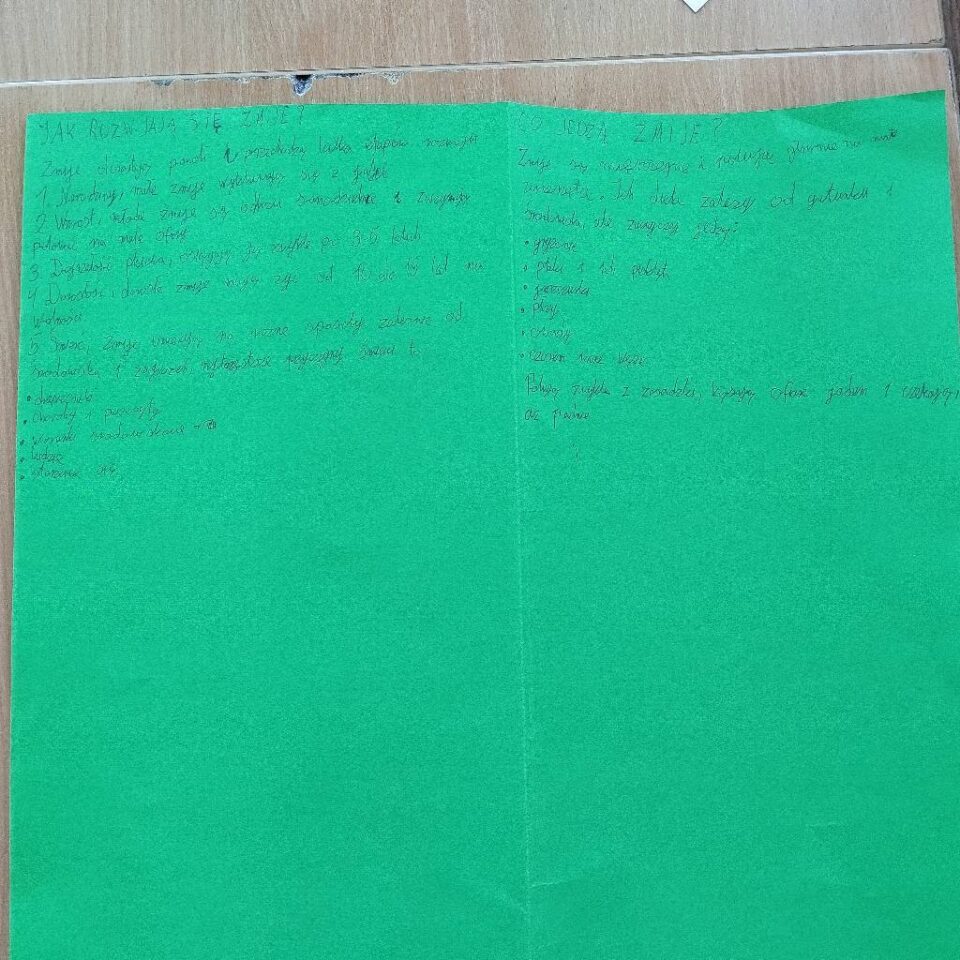 JAK ROZWIJAJĄ SIĘ ŻMIJE?
Żmije stopniowo przechodzą kilka etapów rozwoju
1. Narodziny, małe żmije wykluwają się z
2. Wzrost, młode żmije są od razu samodzielne i zaczynają
polować na małe ofiary
3. Dojrzałość płciowa, osiągają ją zwykle po 3-5 latach
4. Dorosłość, dorosłe żmije mogą żyć od 10 do 15 lat na
wolności
5. Śmierć, żmije umierają na różne sposoby zależnie od
środowiska i zagrożeń, najczęstsze przyczyny śmierci to
• drapieżniki
• choroby i pasożyty
• warunki środowiskowe
• ludzie
• starzenie się
CO JEDZĄ ŻMIJE?
Żmije są mięsożerne i polują głównie na małe
zwierzęta. Ich dieta zależy od gatunku i
środowiska, ale zazwyczaj jedzą:
• gryzonie
• ptaki i ich pisklęta
• jaszczurki
• płazy
• owady
• czasem inne węże
Polują zwykle z zasadzki, kąsają ofiarę jadem i czekają,
aż padnie